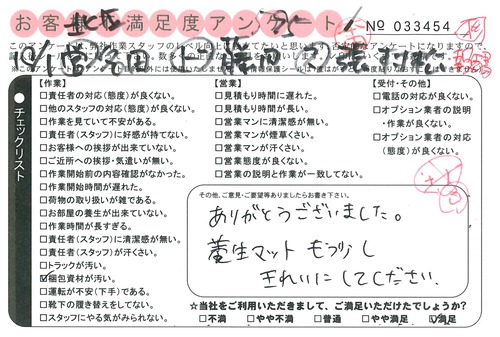 お客様満足度アンケート
No 033454
【作業】
□責任者の対応(態度)が良くない。
□他のスタッフの対応(態度)が良くない。
□作業を見ていて不安がある。
□責任者(スタッフ)に好感が持てない。
□お客様への挨拶が出来ていない。
□ご近所への挨拶・気遣いが無い。
□作業開始前の内容確認がなかった。
□作業開始時間が遅れた。
□荷物の取り扱いが雑である。
□お部屋の養生が出来ていない。
□作業時間が長すぎる。
□責任者(スタッフ)に清潔感が無い。
□責任者(スタッフ)が汗くさい。
□トラックが汚い。
☑梱包資材が汚い。
□運転が不安(下手)である。
□靴下の履き替えをしてない。
□スタッフにやる気がみられない。
【営業】
□見積もり時間が長い。
□見積もり時間に遅れた。
□営業マンに清潔感が無い。
□営業マンが煙草くさい。
□営業マンが汗くさい。
□営業態度が良くない。
□営業の説明と作業が一致してない。
【受付・その他】
□電話の対応が良くない。
□オプション業者の説明
・作業が良くない。
□オプション業者の対応
(態度)が良くない。
チェックリスト
その他、ご意見・ご要望等ありましたらお書き下さい。
ありがとうございました。
養生マット もう少し
きれいにしてください。
☆当社をご利用いただきまして、ご満足いただけたでしょうか?
□不満 □やや不満 □普通 □やや満足 ☑満足